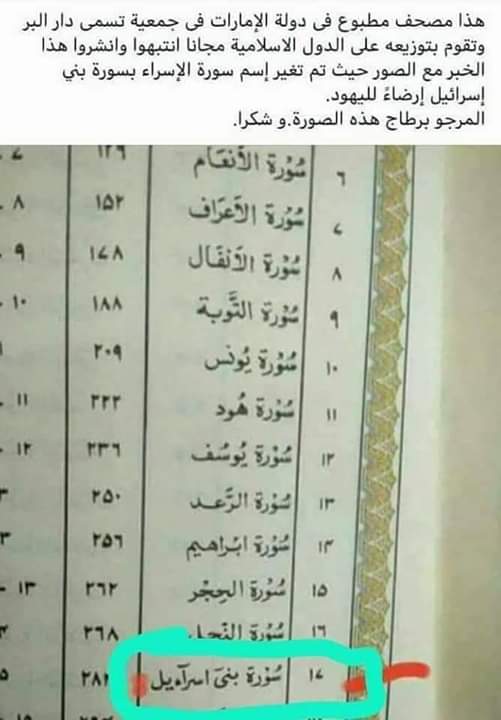 هذا مصحف مطبوع فى دولة الإمارات فى جمعية تسمى دار البر
وتقوم بتوزيعه على الدول الاسلامية مجانا انتبهوا وانشروا هذا
الخبر مع الصور حيث تم تغير إسم سورة الإسراء بسورة بني
إسرائيل إرضاءً لليهود.
المرجو برطاج هذه الصورة.و شكرا.
٦ سُوْرَة الأنعَام ١٢٩
٧ سُوْرَة الأعرَاف ١٥٢ ٨
٨ سُوْرَة الأنفَال ١٧٨ ٩
٩ سُوْرَة التَّوبَة ١٨٨ ١٠
١٠ سُوْرَة يُونس ٢٠٩
١١ سُوْرَة هُود ٢٢٢ ١١
١٢ سُوْرَة يُوسُف ٢٣٦ ١٢
١٣ سُوْرَة الرَّعد ٢٥٠
١٤ سُوْرَة ابْراهيم ٢٥٦
١٥ سُوْرَة الحِجْر ٢٦٢ ١٣
١٦ سُوْرَة النَّحل ٢٦٨
١٧ سُوْرَة بَنىٓ اسرآءيل